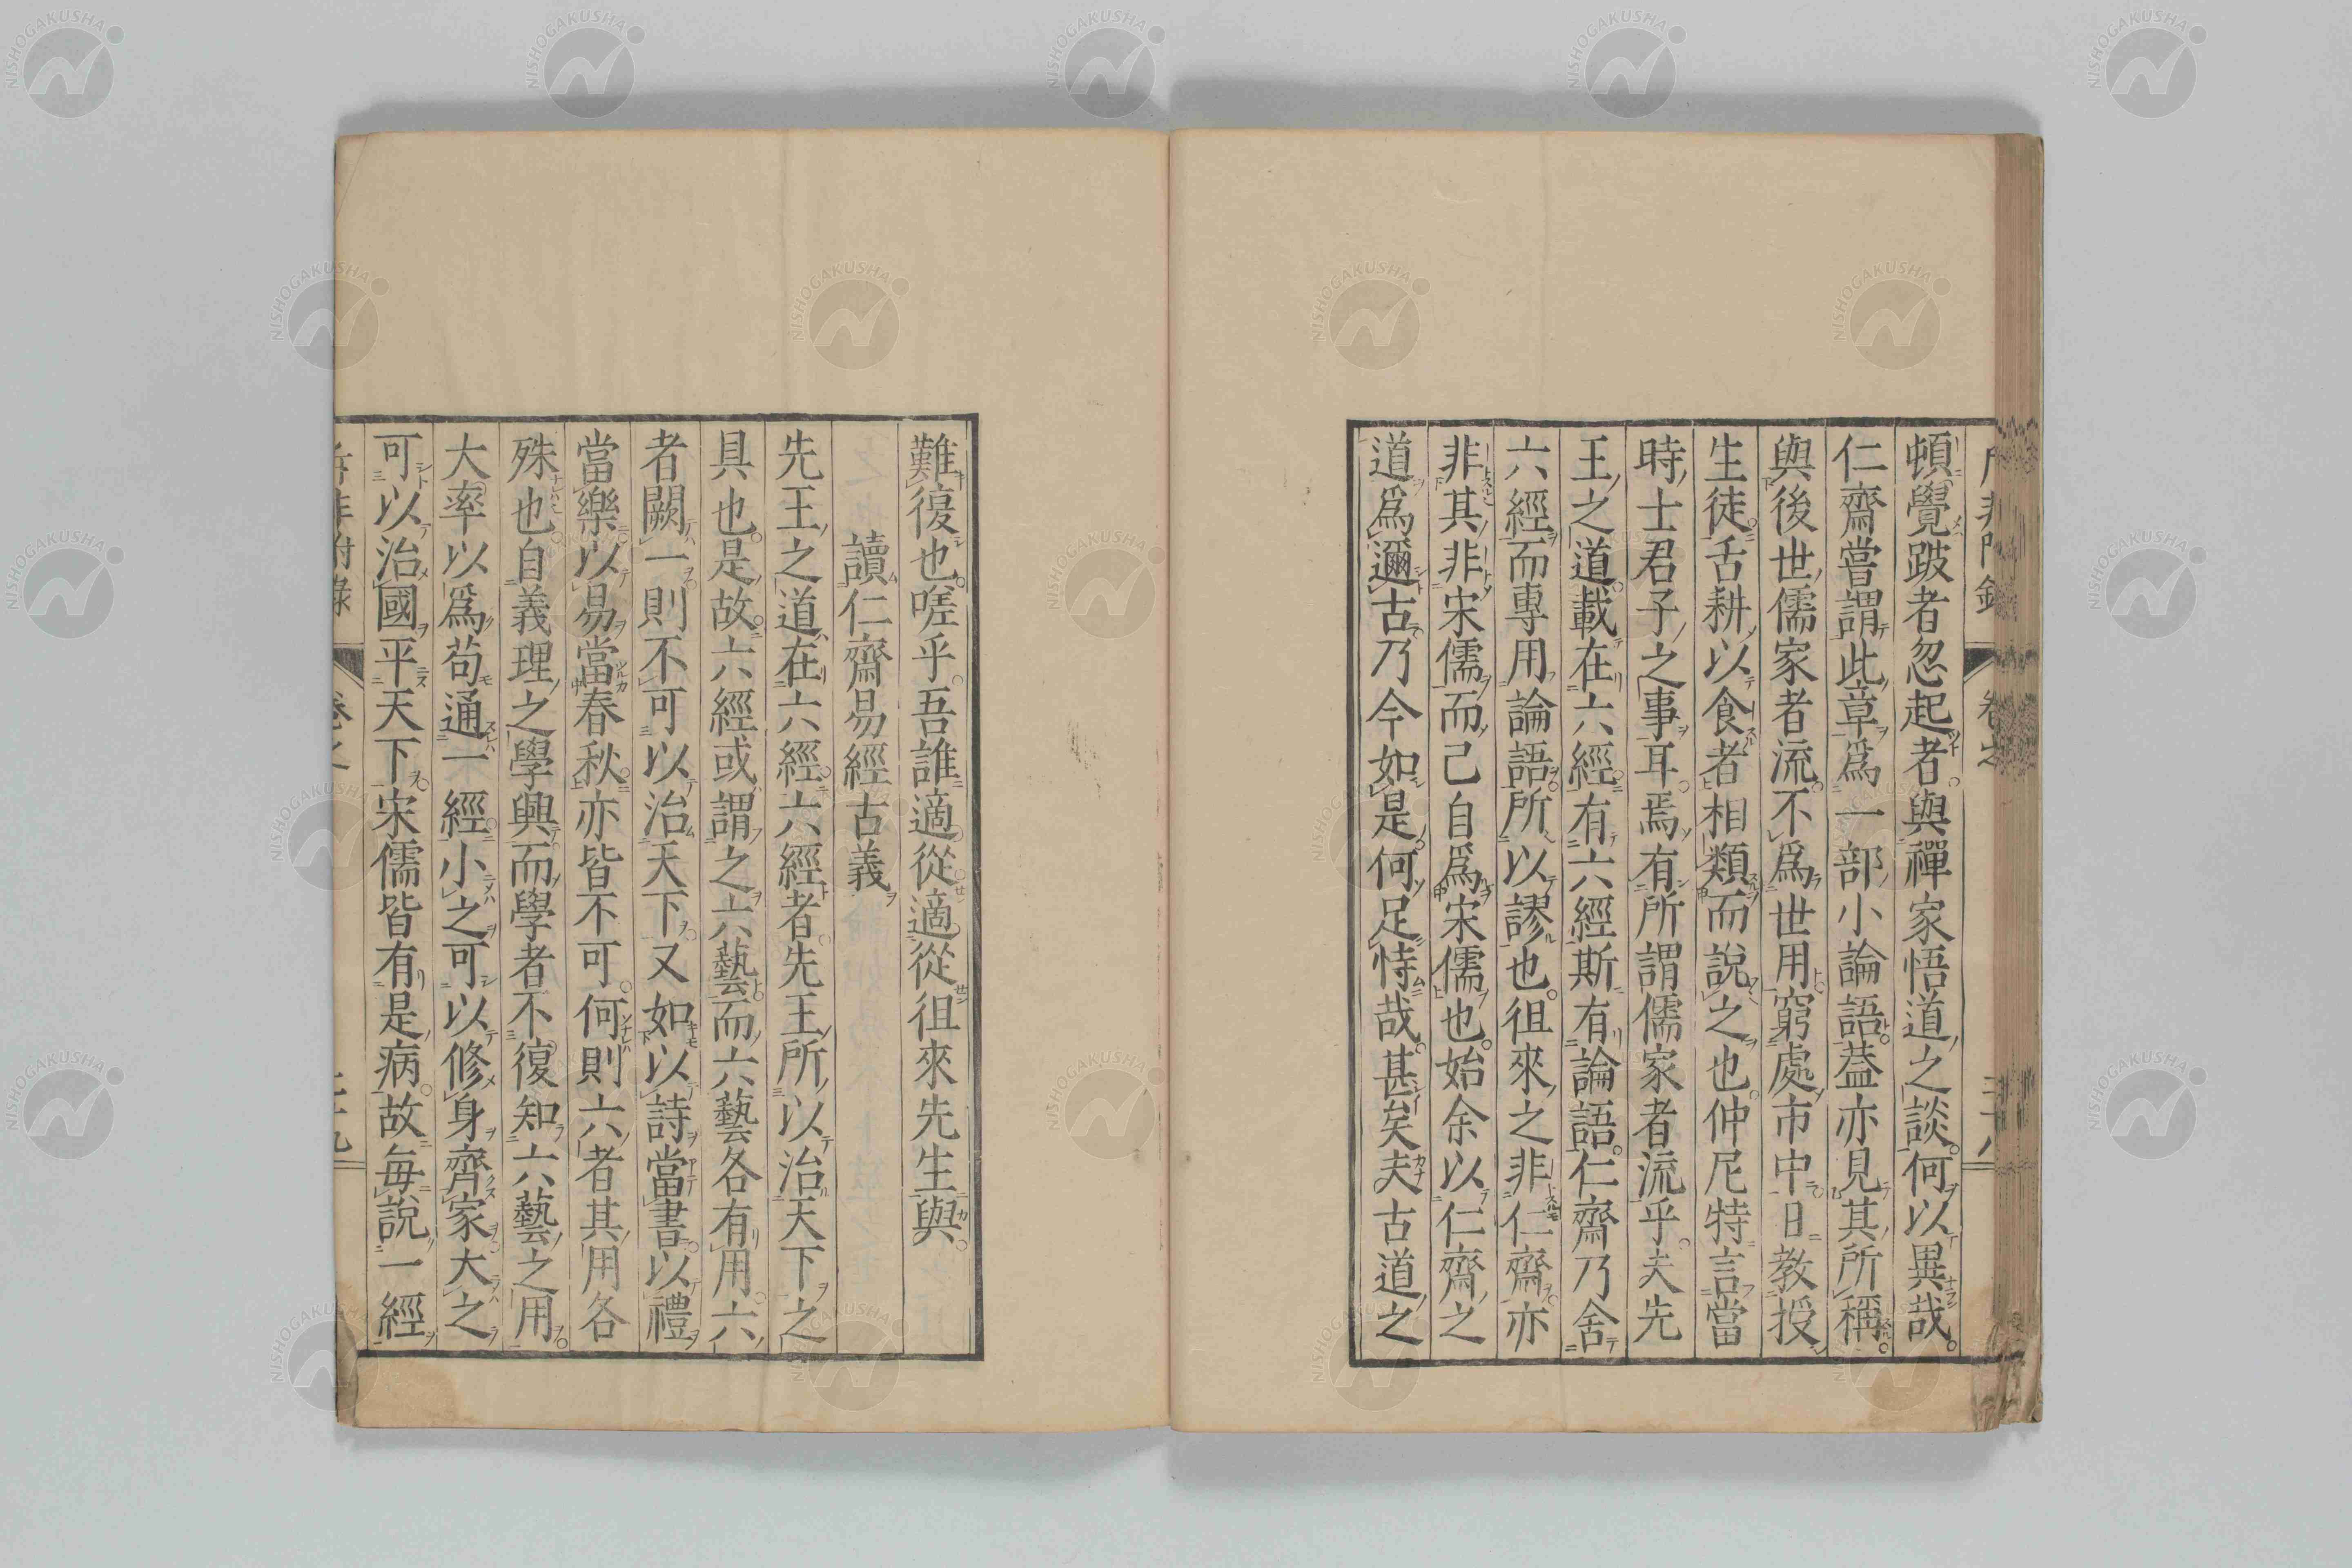 頓覺跛者忽起者與禪家悟道之談何以異哉
仁齋嘗謂此章爲一部小論語蓋亦見其所稱
與後世儒家者流不爲世用窮處市中日教授
生徒舌耕以食者相類而說之也仲尼特言當
時士君子之事耳焉有所謂儒家者流乎夫先
王之道載在六經有六經斯有論語仁齋乃舍
六經而專用論語所以謬也徂來之非仁齋亦
非其非宋儒而己自爲宋儒也始余以仁齋之
道爲邇古乃今如是何足恃哉甚矣夫古道之
難復也嗟乎吾誰適從適從徂來先生與
讀仁齋易經古義
先王之道在六經六經者先王所以治天下之
具也是故六經或謂之六藝而六藝各有用六
者闕一則不可以治天下又如以詩當書以禮
當樂以易當春秋亦皆不可何則六者其用各
殊也自義理之學興而學者不復知六藝之用
大率以爲苟通一經小之可以修身齊家大之
可以治國平天下宋儒皆有是病故每說一經
NISHOGAKUSHA